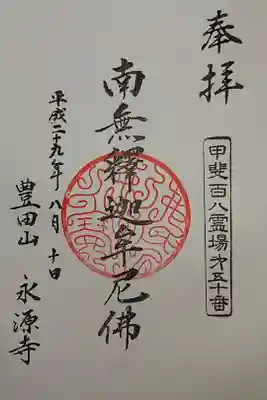 奉拝
甲斐百八霊場才五十番
南無釋迦牟尼佛
平成二十九年 八月 十日
豊田山 永源寺